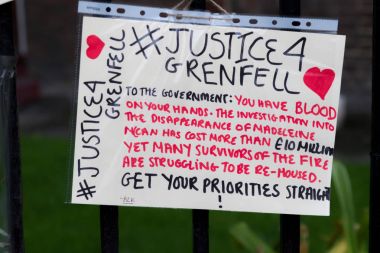 #JUSTICE4
GRENFELL
#JUSTICE4
GRENFELL
TO THE GOVERNMENT: YOU HAVE BLOOD
ON YOUR HANDS. THE INVESTIGATION INTO
THE DISAPPEARANCE OF MADELEINE
MCAN HAS COST MORE THAN £10 MILLION
YET MANY SURVIVORS OF THE FIRE
ARE STRUGGLING TO BE RE-HOUSED.
GET YOUR PRIORITIES STRAIGHT
!